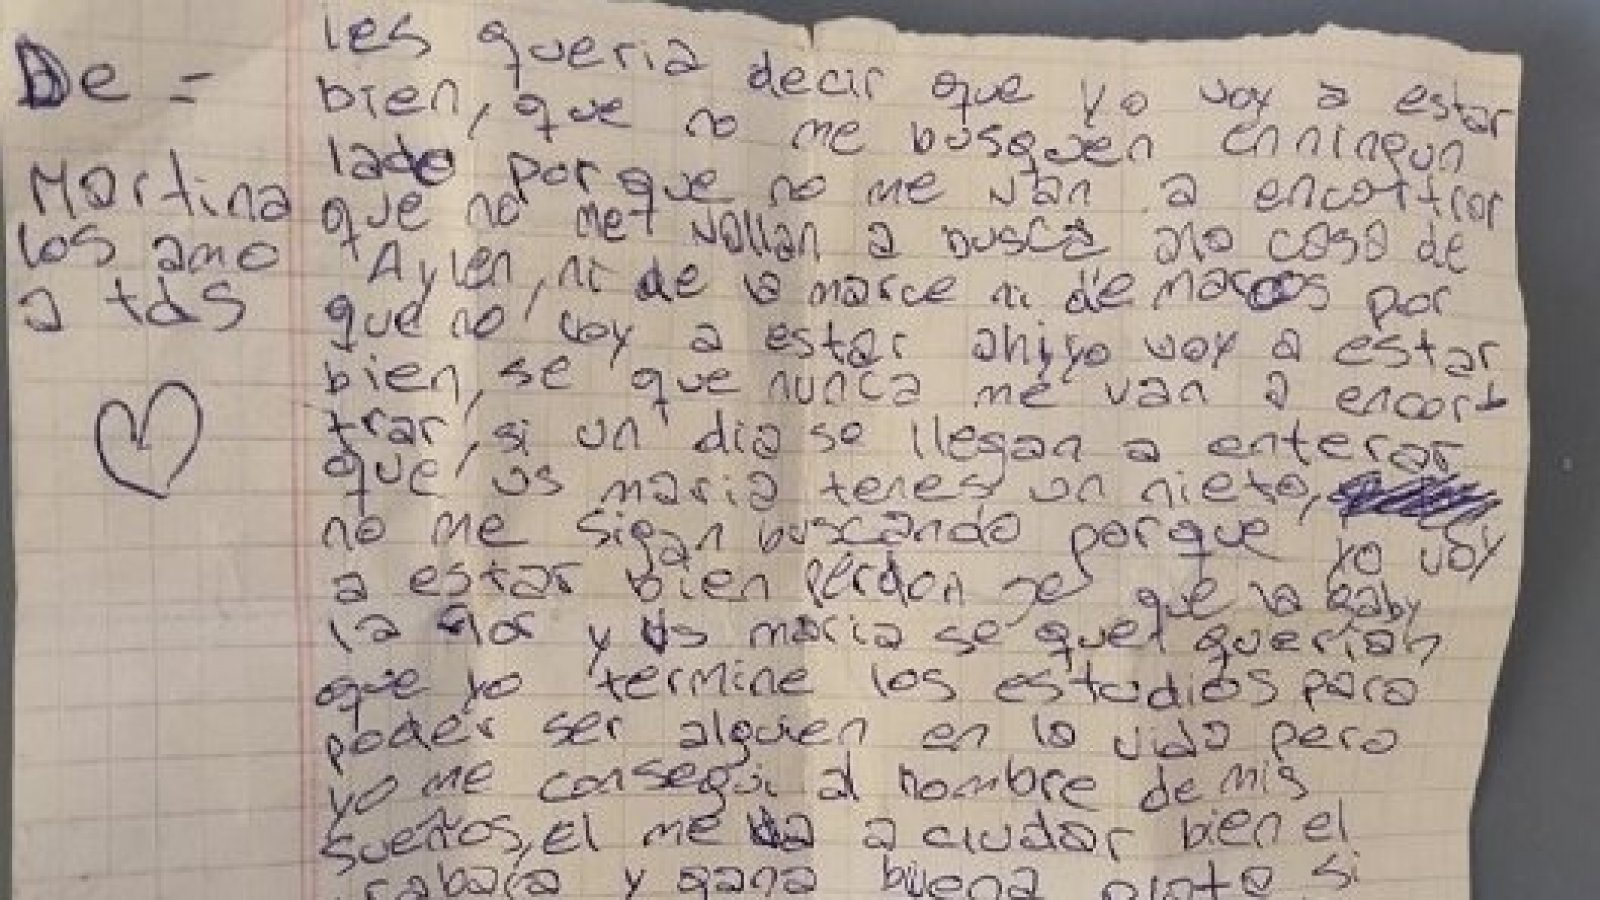 De =
Martina
los amo
a tds
les queria decir que yo voy a estar
bien, que no me busquen enningun
lado porque no me van a encorttrar
que no me vallan a busca ala casa de
Aylen, ni de la marce ni de marcos por
que no voy a estar ahi, yo voy a estar
bien, se que nunca me van a encort
trar, si un dia se llegan a enterar
que vs maria tenes un nieto,
no me sigan buscando porque yo voy
a estar bien perdon se que la gaby
la flor y vs maria se que querian
que yo termine los estudios para
poder ser alguien en la vida pero
yo me consegui al hombre de mis
sueños, el me va a ciudar bien el
trabaja y gana buena plata si